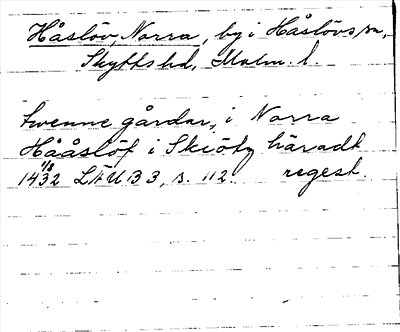 Håslöv, Norra, by i Håslövs sn,
Skytts hd, Malm. l.
tvenne gårdar, i Norra
Hååslöf i Skiötz häradt
1/8
1432 LÄU B 3, s. 112. regest.